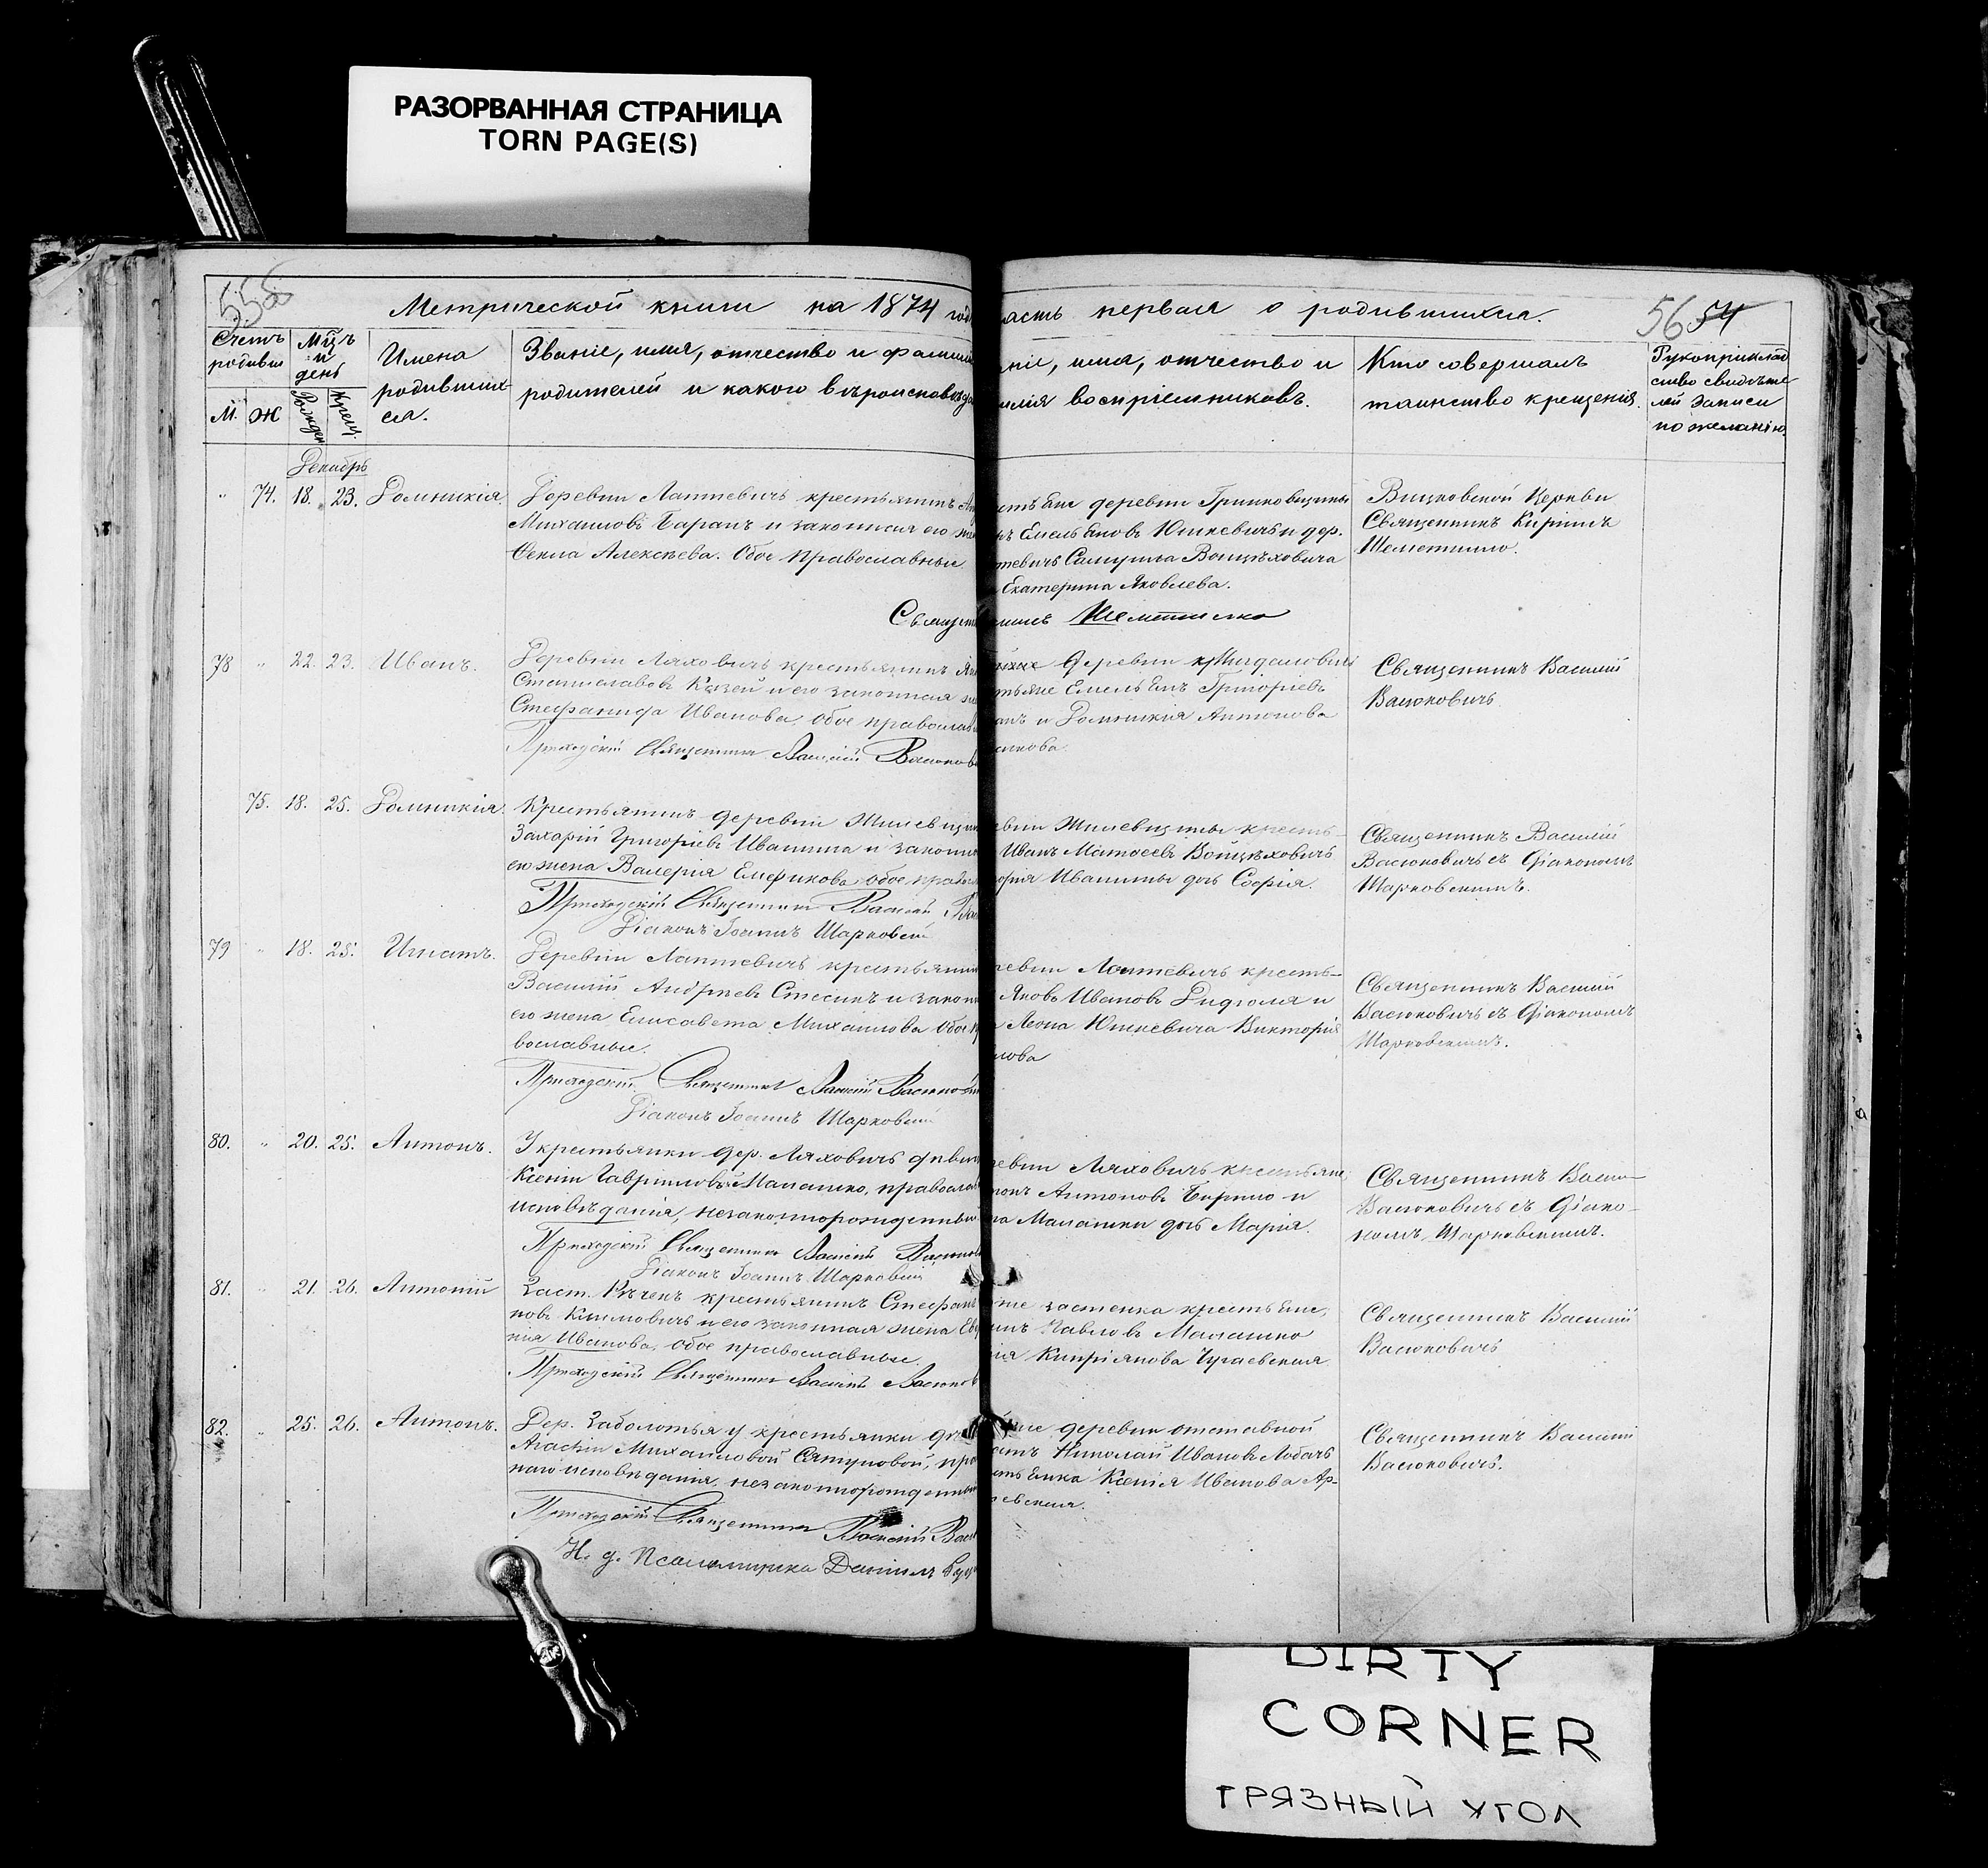 РАЗОРВАННАЯ СТРАНИЦА
TORN PAGE(S)
Метрической книги на 1874 год
асть первая о родившихся.
56 54
Счетъ родивш
М. Ж
Мцъ и день
Рожден Крещ.
Имена родивших-ся.
Званіе, имя, отчество и фамил
родителей и какого вѣроисповѣда
ніе, имя, отчество и
милія воспріемниковъ.
Кто совершалъ
таинство крещенія.
Рукоприклад
ство свидѣте
лей записи
по желанію.
Декабрь
" 74. 18. 23. Домникія.
Деревни Лаптевичъ крестьянинъ
Михаиловъ Баранъ и законная его же
Ѳекла Алексѣева. Обое православные
стьяне деревни Гринковщины
Емельяновъ Юшкевичъ и дер.
тевичъ Самуила Войцѣховича
Екатерина Яковлева.
Вицковской Церкви
Священникъ Кириллъ
Шеметилло.
Священникъ Шеметилло
78 " 22. 23. Иванъ.
Деревни Ляховичъ крестьянинъ
Станиславовъ Казей и его законная же
Стефанида Иванова, обое православ
Приходскій Священникъ Василій Васюков
деревни
тьяне Емельянъ Григорьевъ
и Домникія Антонова
Священникъ Василій
Васюковичъ.
75. 18. 25. Домникія.
Крестьянинъ деревни Жилевщин
Захарій Григорьевъ Иванина и законн
его жена Валерія Емеликова, обое право
Приходскій Священникъ Василій
Діаконъ Іоаннъ Шарковскій
евни Жилевщины кресть-
Иванъ Матѳеевъ Войцѣховичъ
Иванины дочь Софія.
Священникъ Василій
Васюковичъ съ діакономъ
Шарковскимъ.
79 " 18. 25. Игнатъ.
Деревни Лаптевичъ крестьянин
Василій Андреевъ Стесикъ и законн
его жена Елисавета Михаилова обое
вославные.
Приходскій Священникъ Василій Васюкови
Діаконъ Іоаннъ Шарковскій
ревни Лаптевичъ кресть-
Яковъ Ивановъ и
Леона Юшкевича Викторія
лова
Священникъ Василій
Васюковичъ съ діакономъ
Шарковскимъ.
80. " 20. 25. Антонъ.
У крестьянки дер. Ляховичъ дѣви
Ксеніи Гавриловой Малашко, православ
исповѣданія, незаконнорожденный
Приходскій Священникъ Василій Васюков
Діаконъ Іоаннъ Шарковскій
евни Ляховичъ крестьяне
Антоновъ Бирило и
Малашки дочь Марія.
Священникъ Васи-
Васюковичъ съ діако-
номъ Шарковскимъ.
81. " 21. 26. Антоній
Заст. крестьянинъ Стефан
новъ Климовичъ и его законная жена Ев
нія Иванова, обое православные.
Приходскій Священникъ Василій Васюков
же застенка крестьяне,
Павловъ Малашко
Кипріянова Чугаевская
Священникъ Василій
Васюковичъ
82. " 25. 26. Антонъ.
Дер. Заболотья у крестьянки дѣв
Агафіи Михаиловой Сятуловой, пра
наго исповѣданія, незаконнорожденный
Приходскій Священникъ Василій Васю
И. д. Псаломщика Даніилъ
же деревни отставной
Николай Ивановъ Лобачъ
стьянка Ксенія Иванова Ар-
евская.
Священникъ Василій
Васюковичъ.
DIRTY
CORNER
ГРЯЗНЫЙ УГОЛ